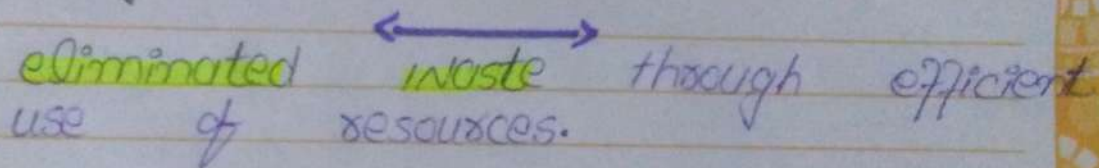 eliminated waste through efficient
use of resources.